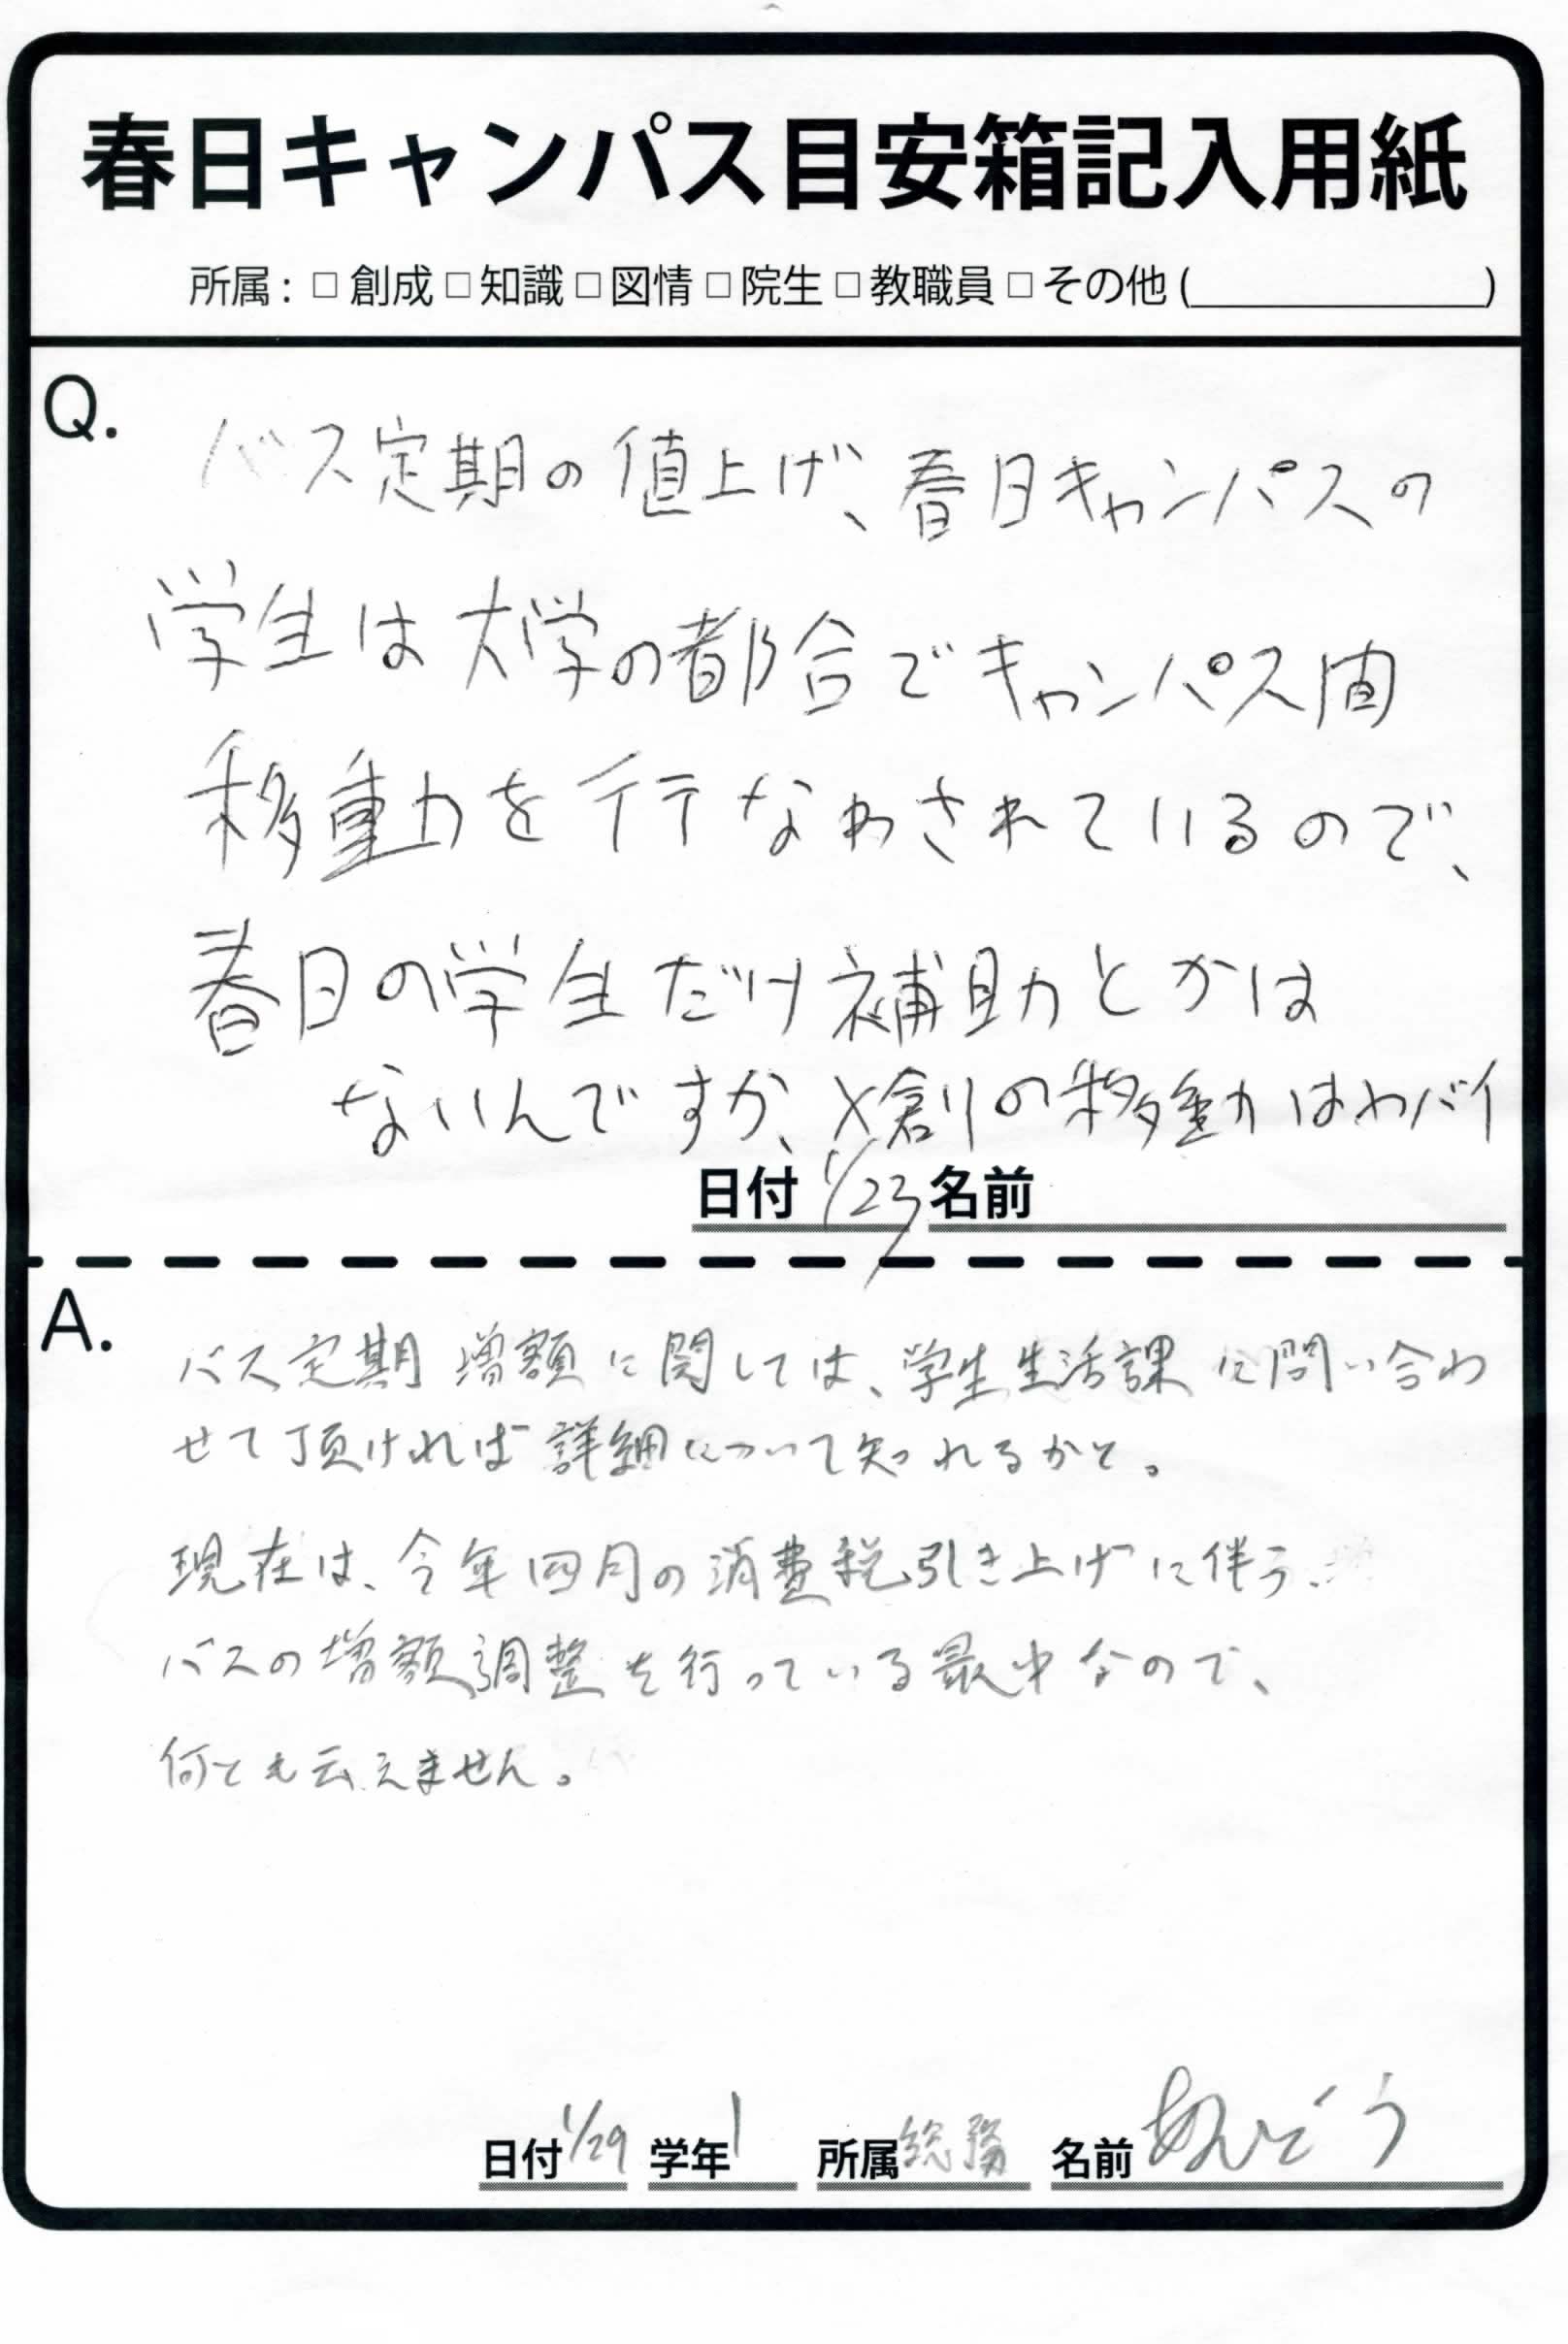 春日キャンパス目安箱記入用紙
所属 : □ 創成 □ 知識 □ 図情 □ 院生 □ 教職員 □ その他 ( )
Q.
バス定期の値上げ、春日キャンパスの
学生は大学の都合でキャンパス間
移動を行なわされているので、
春日の学生だけ補助とかは
ないんですか、メ創の移動はヤバイ
日付 1/23 名前
A.
バス定期増額に関しては、学生生活課に問い合わ
せて頂ければ詳細について知れるかと。
現在は、今年四月の消費税引き上げに伴う、
バスの増額調整を行っている最中なので、
何とも云えません。
日付 1/29 学年 1 所属 総務 名前 あんどう